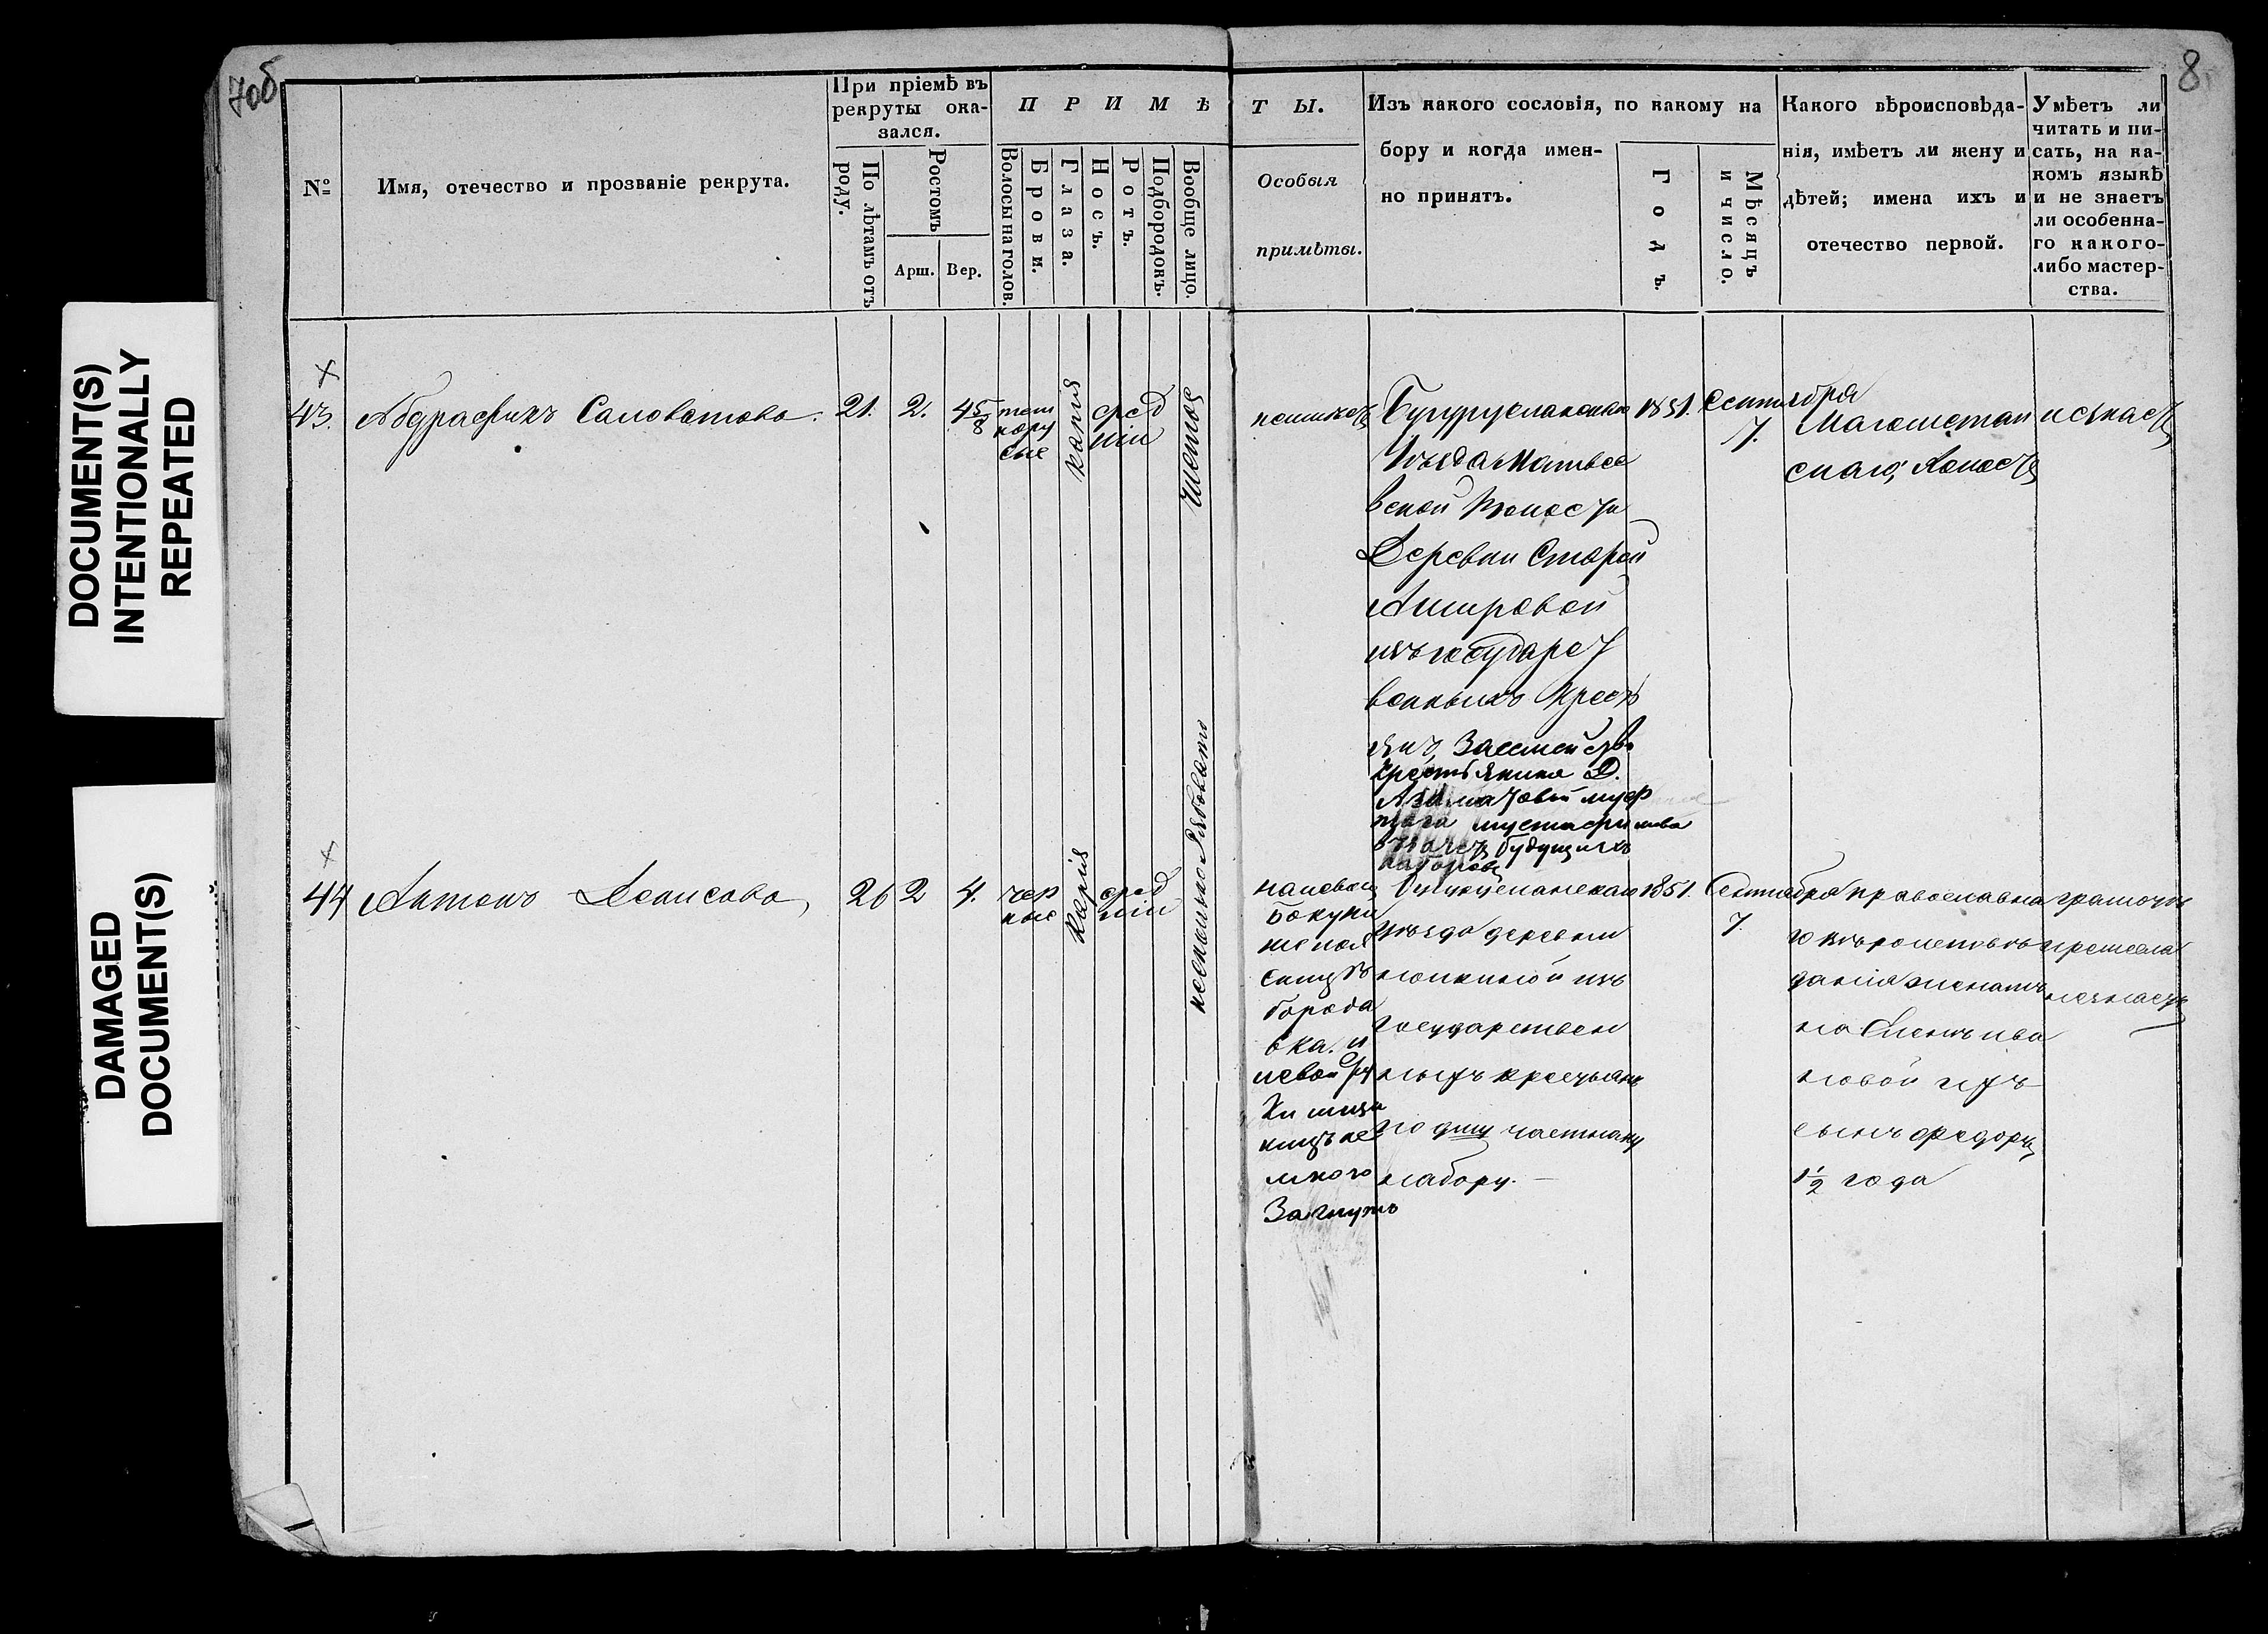 7об
8
DOCUMENT(S)
INTENTIONALLY
REPEATED
DAMAGED
DOCUMENT(S)
№
Имя, отечество и прозваніе рекрута.
При пріемѣ въ
рекруты ока-
зался.
По лѣтамъ отъ
роду.
Ростомъ
Арш.
Вер.
П Р И М Ѣ
Волосы на голов.
Брови.
Глаза.
Носъ.
Ротъ.
Подбородокъ.
Вообще лицо.
Т Ы.
Особыя
примѣты.
Изъ какого сословія, по какому на
бору и когда имен-
но принятъ.
Годъ.
Мѣсяцъ
и число.
Какого вѣроисповѣда-
нія, имѣетъ ли жену и
дѣтей; имена ихъ и
отечество первой.
Умѣетъ ли
читать и пи-
сать, на ка-
комъ языкѣ
и не знаетъ
ли особенна-
го какого-
либо мастер-
ства.
43.
Абдрафикъ Саловатовъ.
21.
2.
4 5/8
тем
нору
сые
карія
сред
ніи
чистое
неимѣетъ
Бугурусланскаго
Уѣзда Матвее
вской Волости
Деревни Старой
Ашировой
изъ государст
венныхъ крест
янъ, За семейство
крестьянина Д.
будущихъ
наборовъ
1851.
Сентября
7.
Магометан
скаго, Холостъ
незнаетъ
44
Антонъ Денисовъ,
26
2
4.
чер
ные
карія
сред
ніи
несколько Рябовато
на левом
боку
снизу
борода
вка. и
левой ру
ки
не
много
Загнутъ
Бугурусланскаго
уѣзда деревни
изъ
государствен
ныхъ крестьянъ
по 9му частному
набору.
1851.
Сентября
7.
православна
го вѣроисповѣ
данія женатъ
на Еленѣ Ива
новой ихъ
сынъ Федоръ
1½ года
грамотѣ
и ремесла
незнаетъ